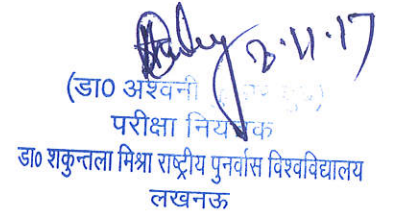 2.11.17
(डा० अश्वनी
परीक्षा नियंत्रक
डा० शकुन्तला मिश्रा राष्ट्रीय पुनर्वास विश्वविद्यालय
लखनऊ